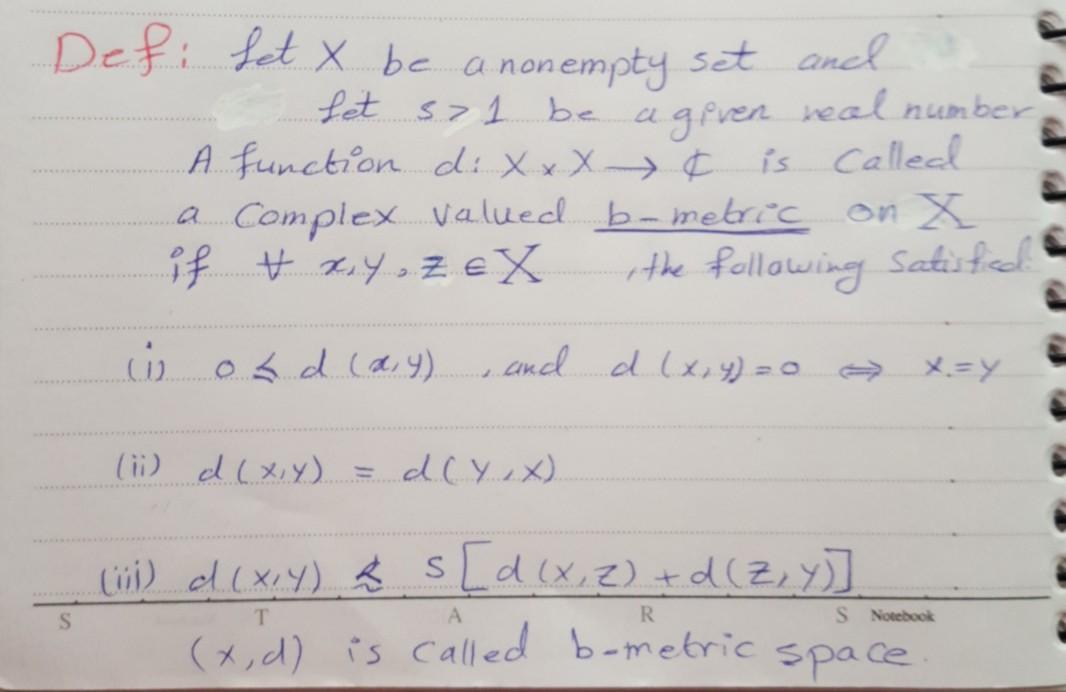 Def: Let X be a nonempty set and
let s > 1 be a given real number
A function d: X × X → ₵ is called
a Complex valued b-metric on X
if ∀ x,y,z ∈ X , the following Satisfied.
(i) 0 ≲ d (x,y) , and d (x,y) = 0 ⇔ x = y
(ii) d (x,y) = d (y,x)
(iii) d (x,y) ≲ s [d (x,z) + d (z,y)]
S T A R S Notebook
(x,d) is called b-metric space.